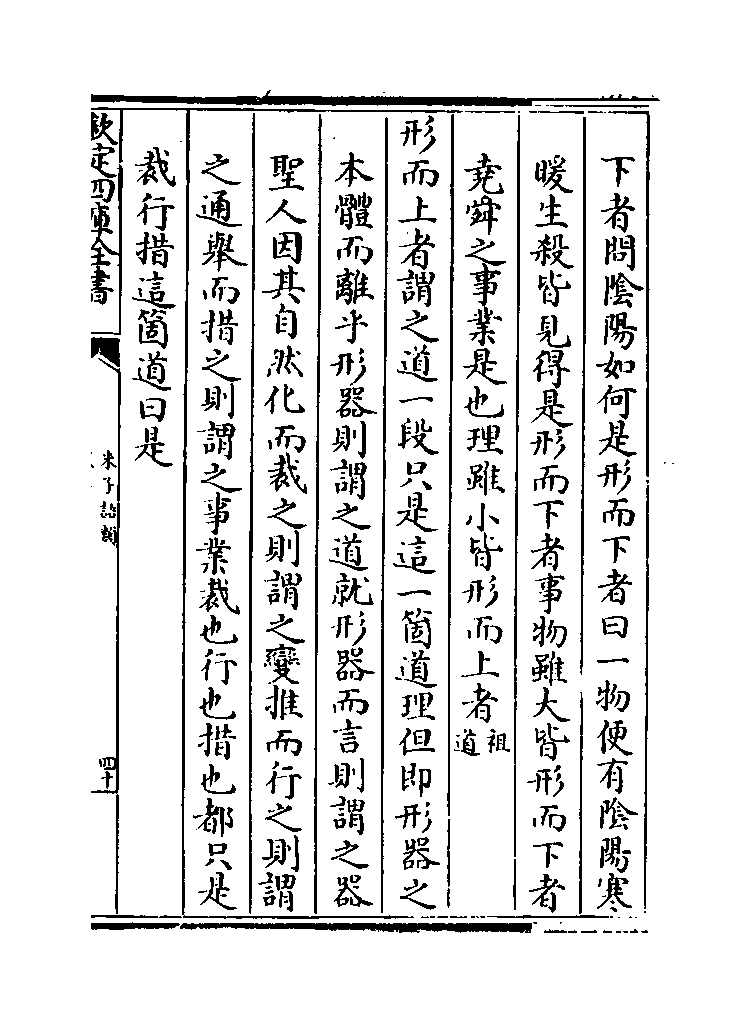 下者問陰陽如何是形而下者曰一物便有陰陽寒
暖生殺皆見得是形而下者事物雖大皆形而下者
堯舜之事業是也理雖小皆形而上者祖道
形而上者謂之道一段只是這一箇道理但即形器之
本體而離乎形器則謂之道就形器而言則謂之器
聖人因其自然化而裁之則謂之變推而行之則謂
之通舉而措之則謂之事業裁也行也措也都只是
裁行措這箇道曰是
欽定四庫全書
朱子語類
四十